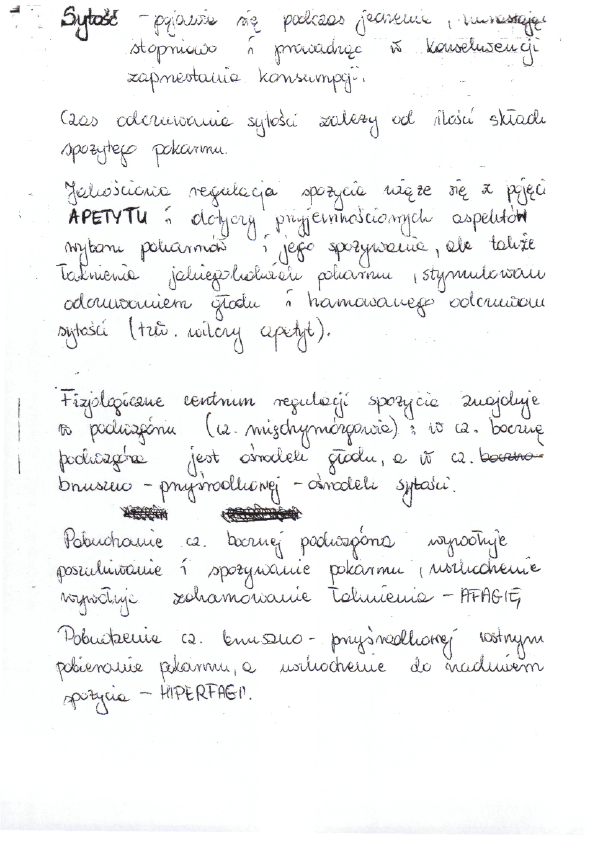 Sytość - pojawia się podczas jedzenia, narastając
stopniowo i prowadząc w konsekwencji
zaprzestania konsumpcji.
Czas odczuwania sytości zależy od ilości składu
spożytego pokarmu.
Jakościowa regulacja spożycia wiąże się z pojęci
APETYTU i dotyczy przyjemnościowych aspektów
wyboru pokarmów i jego spożywania, ale także
łaknienia jakiegokolwiek pokarmu, stymulowan
odczuwaniem głodu i hamowanego odczuwan
sytości (tzw. wilczy apetyt).
Fizjologiczne centrum regulacji spożycia znajduje
w podwzgórzu (cz. międzymózgowia) : w cz. bocznej
podwzgórza jest ośrodek głodu, a w cz.
brzuszno - przyśrodkowej - ośrodek sytości.
Pobudzanie cz. bocznej podwzgórza wywołuje
poszukiwanie i spożywanie pokarmu, uszkodzenie
wywołuje zahamowanie łaknienia - AFAGIĘ
Pobudzenia cz. brzuszno - przyśrodkowej wstrzym
pobieranie pokarmu, a uszkodzenie do nadmiern
spożycia - HIPERFAGII.